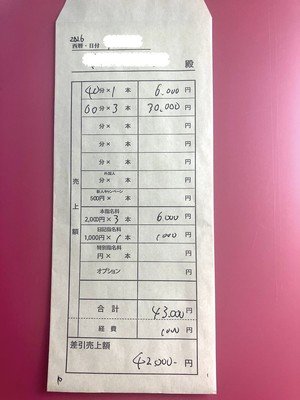 2026
西暦・日付
殿
40分×1本 6,000円
60分×3本 30,000円
分× 本 円
分× 本 円
分× 本 円
外国人
分× 本 円
新人キャンペーン
500円× 本 円
本指名料
2,000円×3本 6,000円
日記指名料
1,000円×1本 1,000円
特別指名料
円× 本 円
オプション 円
売上額
合計 43,000円
経費 1,000円
差引売上額
42,000-円